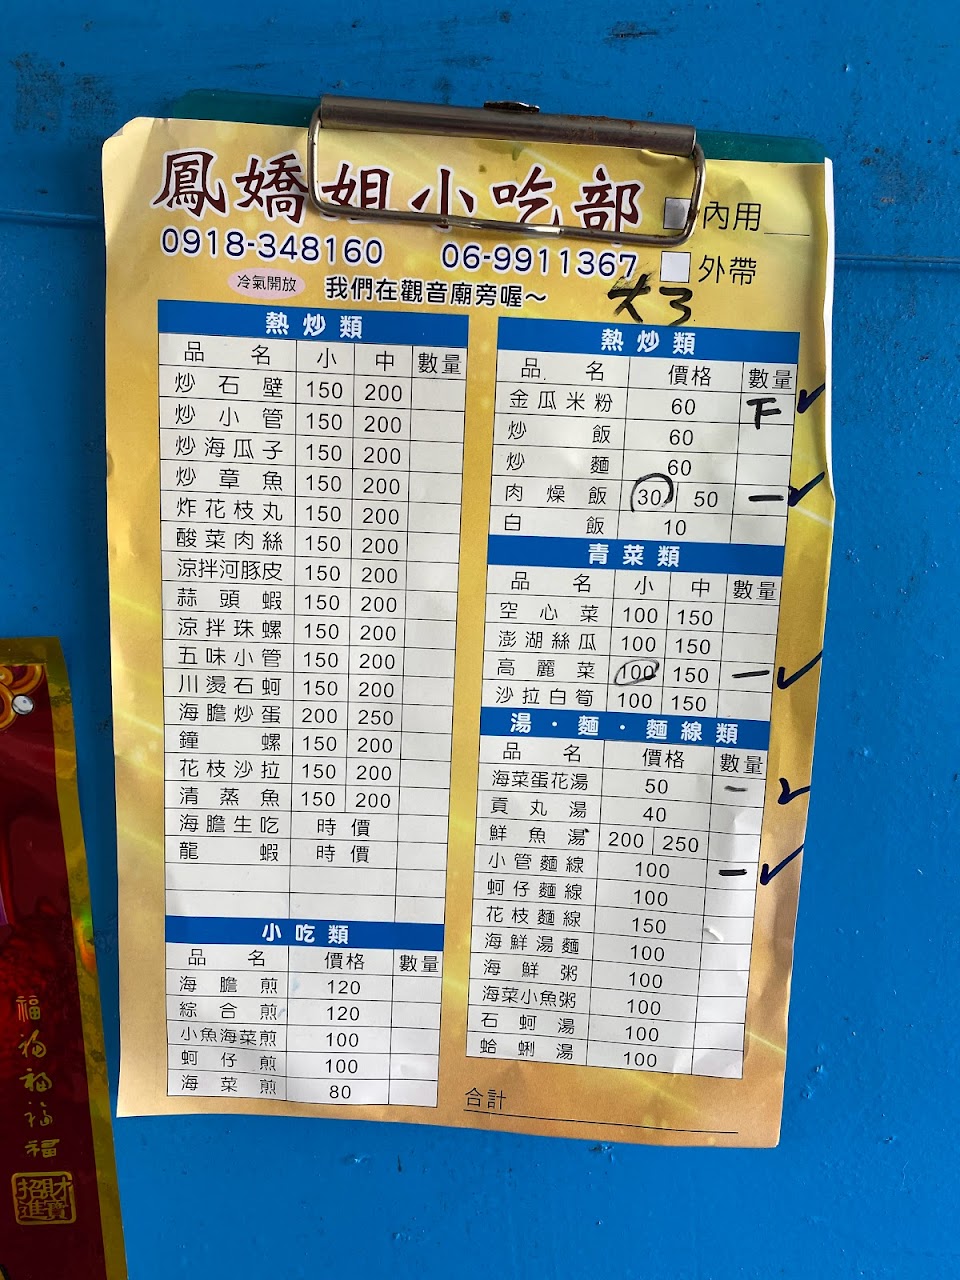 鳳嬌姐小吃部
0918-348160 06-9911367
□內用
□外帶
冷氣開放 我們在觀音廟旁喔～
大3
熱炒類
品名 小 中 數量
炒石壁 150 200
炒小管 150 200
炒海瓜子 150 200
炒章魚 150 200
炸花枝丸 150 200
酸菜肉絲 150 200
涼拌河豚皮 150 200
蒜頭蝦 150 200
涼拌珠螺 150 200
五味小管 150 200
川燙石蚵 150 200
海膽炒蛋 200 250
鐘螺 150 200
花枝沙拉 150 200
清蒸魚 150 200
海膽生吃 時價
龍蝦 時價
小吃類
品名 價格 數量
海膽煎 120
綜合煎 120
小魚海菜煎 100
蚵仔煎 100
海菜煎 80
熱炒類
品名 價格 數量
金瓜米粉 60 下 ✓
炒飯 60
炒麵 60
肉燥飯 30 50 一 ✓
白飯 10
青菜類
品名 小 中 數量
空心菜 100 150
澎湖絲瓜 100 150
高麗菜 100 150 一 ✓
沙拉白筍 100 150
湯・麵・麵線類
品名 價格 數量
海菜蛋花湯 50 一 ✓
貢丸湯 40
鮮魚湯 200 250
小管麵線 100 一 ✓
蚵仔麵線 100
花枝麵線 150
海鮮湯麵 100
海鮮粥 100
海菜小魚粥 100
石蚵湯 100
蛤蜊湯 100
合計
福福福福福
招財進寶